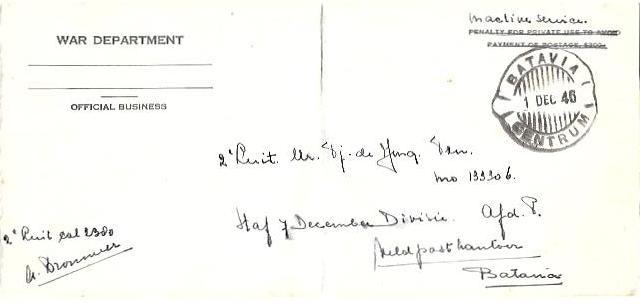 WAR DEPARTMENT
OFFICIAL BUSINESS
In active service.
PENALTY FOR PRIVATE USE TO AVOID
PAYMENT OF POSTAGE, $300
BATAVIA
1 DEC 46
CENTRUM
2e Luit. Mr. Tj. de Jong.
no 199306.
Staf 7 December Divisie. Afd. P.
Veldpostkantoor
Batavia
2e Luit